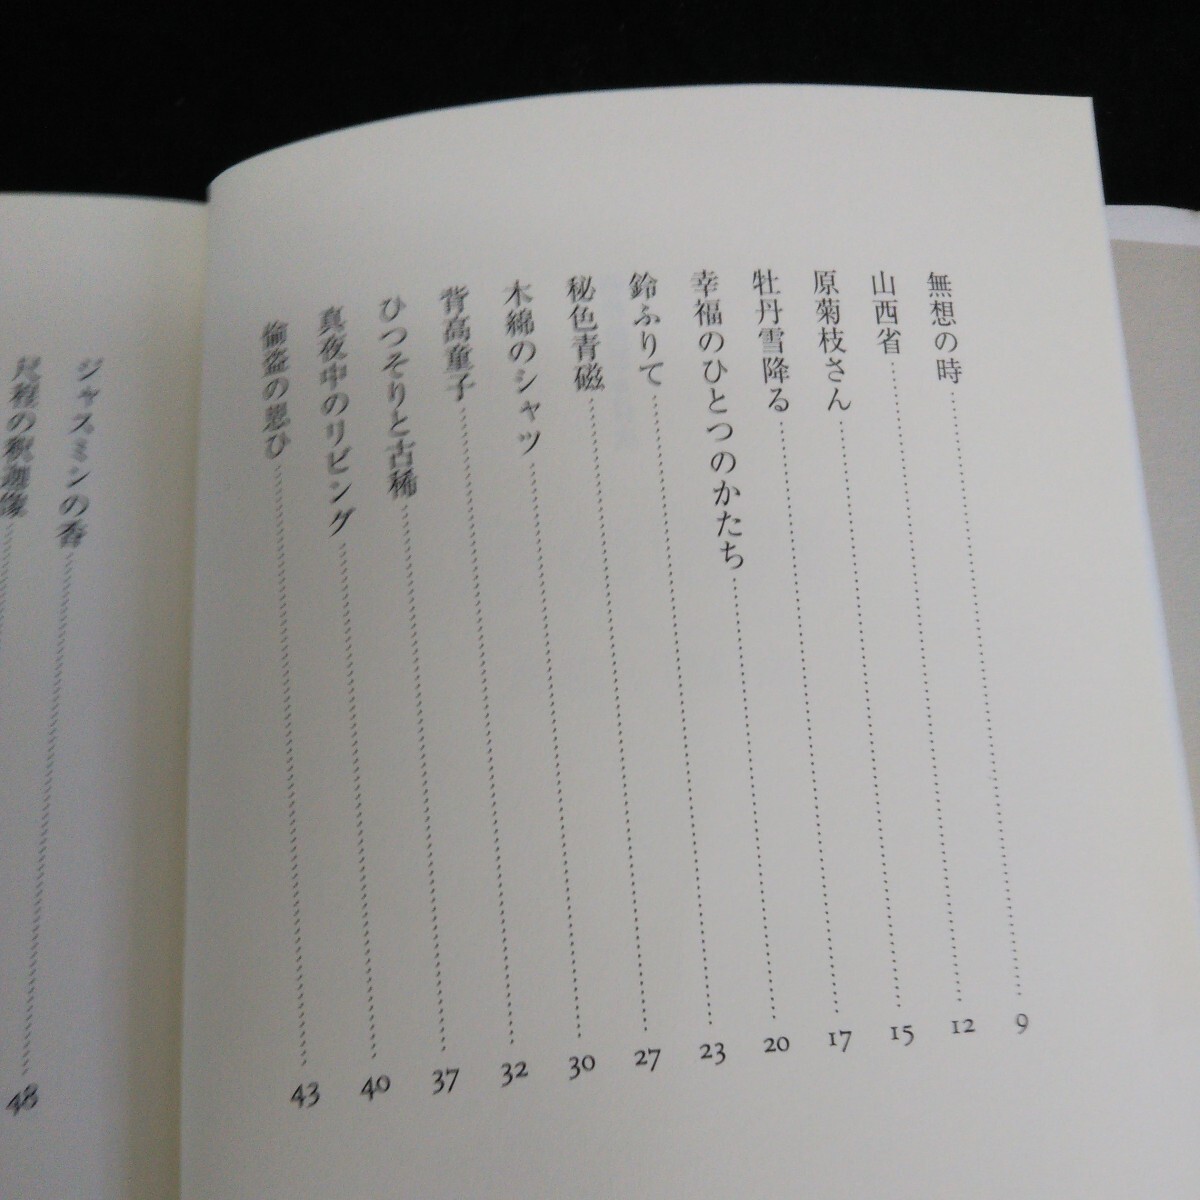 無想の時 9
山西省 12
原菊枝さん 15
牡丹雪降る 17
幸福のひとつのかたち 20
鈴ふりて 23
秘色青磁 27
木綿のシャツ 30
背高童子 32
ひつそりと古稀 37
真夜中のリビング 40
偸盗の 43
ジャスミンの香 48
尺程の釈迦像